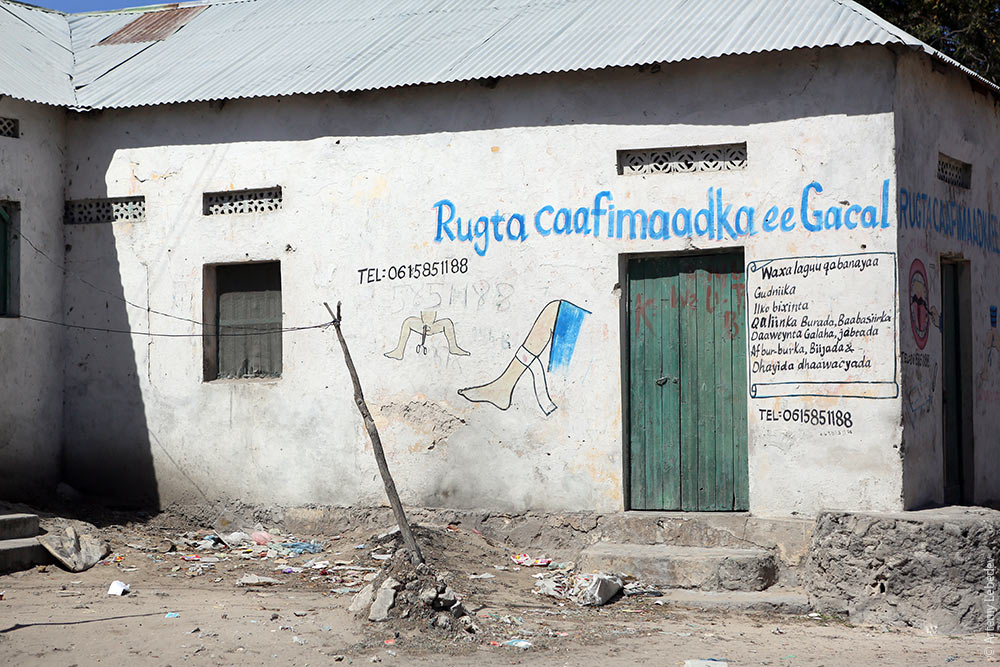 Rugta caafimaadka ee Gacal
TEL:0615851188
5851188
Waxa laguu qabanayaa
Gudniika
Ilko bixinta
Qaliinka Burada, Baabasiirka
Daaweynta Galaha, jabtada
Af bur-burka, Biijada &
Dhayida dhaawacyada
TEL:0615851188
RUGTA CAAFIMAADKA
© Artemy Lebedev